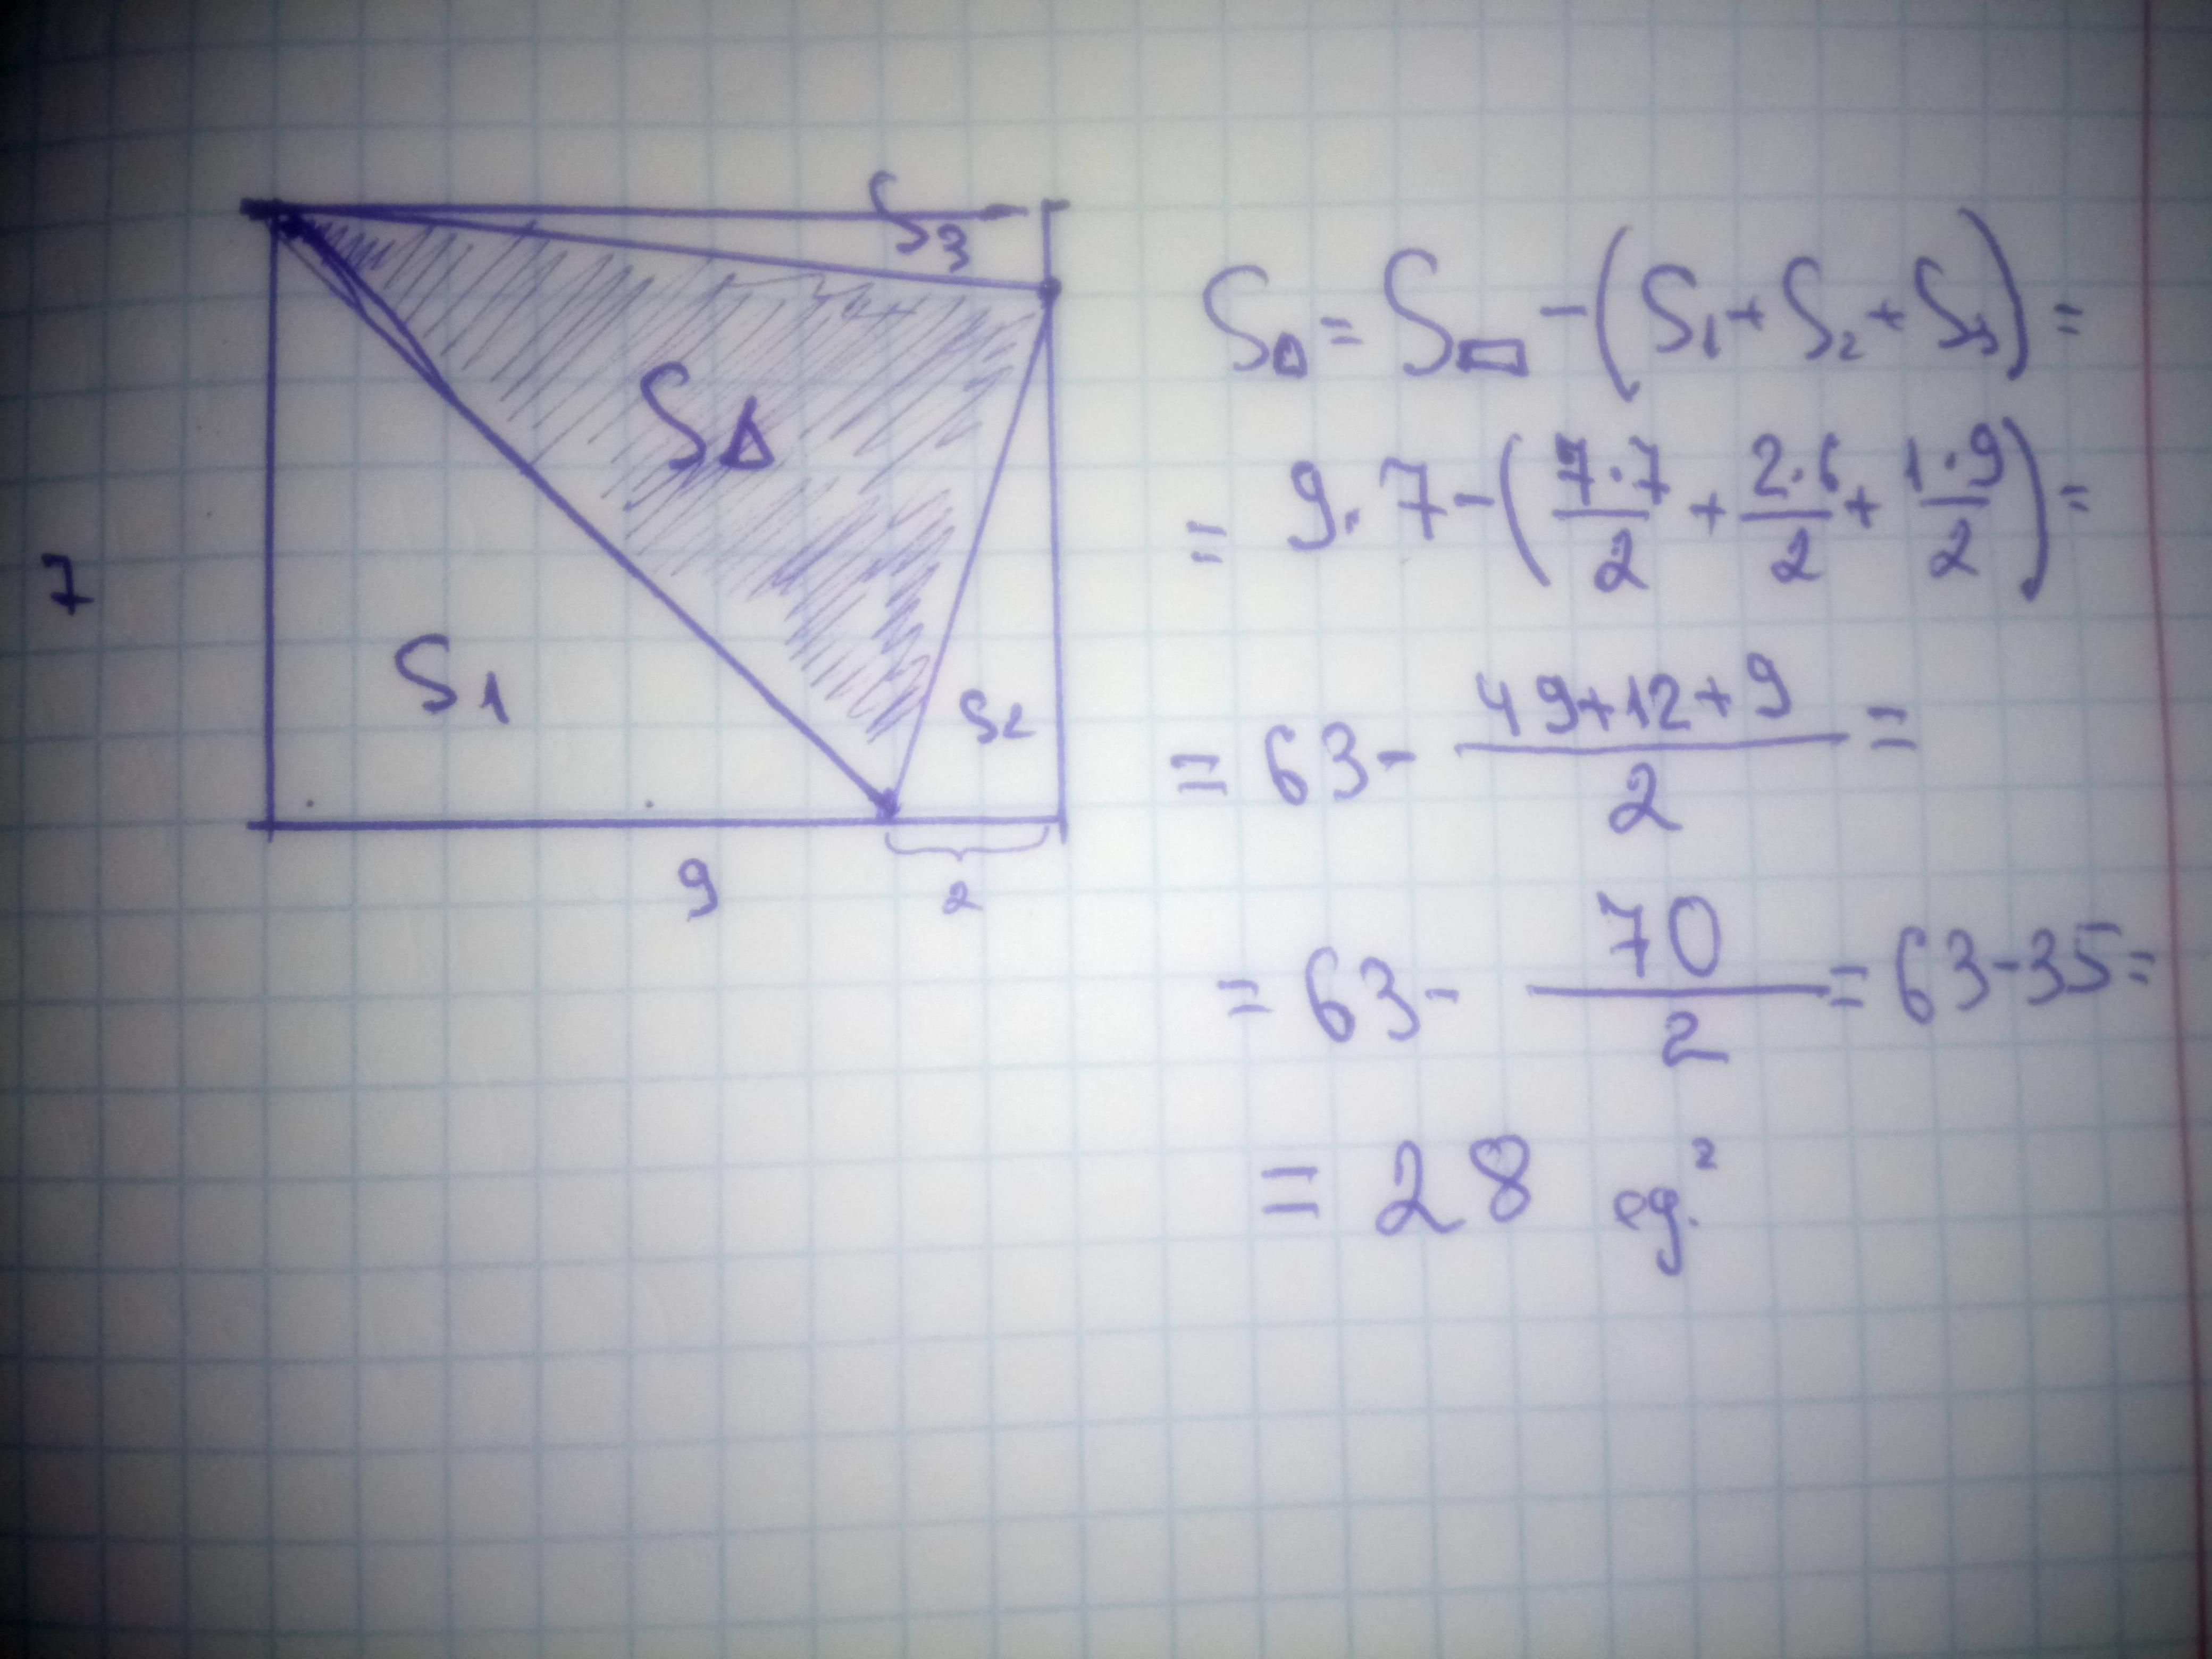 S3
S∆
7
S1
S2
9
2
S∆ = S▭ - (S1 + S2 + S3) =
= 9·7 - (7·7/2 + 2·6/2 + 1·9/2) =
= 63 - 49+12+9/2 =
= 63 - 70/2 = 63-35=
= 28 ед.²